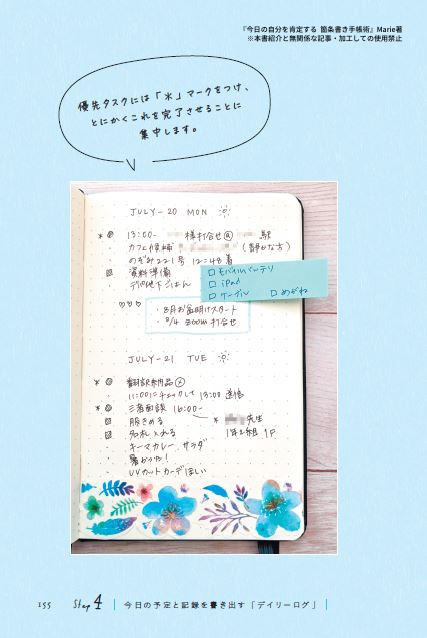 『今日の自分を肯定する 箇条書き手帳術』Marie著
※本書紹介と無関係な記事・加工しての使用禁止
優先タスクには「＊」マークをつけ、
とにかくこれを完了させることに
集中します。
JULY-20 MON
＊ 13:00- 様打合せ 駅
カフェ候補 (静かな方)
のぞみ221号 12:48着
資料準備
デパ地下ごはん
モバイルバッテリ
iPad
ケーブル めがね
♡♡♡
・8月お盆明けスタート
・8/4 zoom打合せ
JULY-21 TUE
＊ 翻訳納品
11:00にチェックして 13:00 送信
＊ 三者面談 16:00- ＊ 先生
服きめる 1年2組 1F
名札入れる
キーマカレー、サラダ
暑かった!
UVカットカーデほしい
155 Step 4 今日の予定と記録を書き出す「デイリーログ」